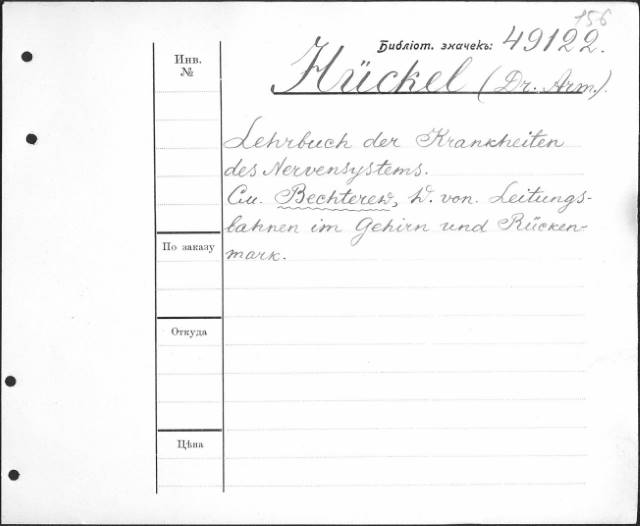 156
Библіот. значекъ: 49122.
Инв.
№
Hückel (Dr. Arm.).
Lehrbuch der Krankheiten
des Nervensystems.
См. Bechterew, W. von. Leitungs-
bahnen im Gehirn und Rücken-
mark.
По заказу
Откуда
Цѣна